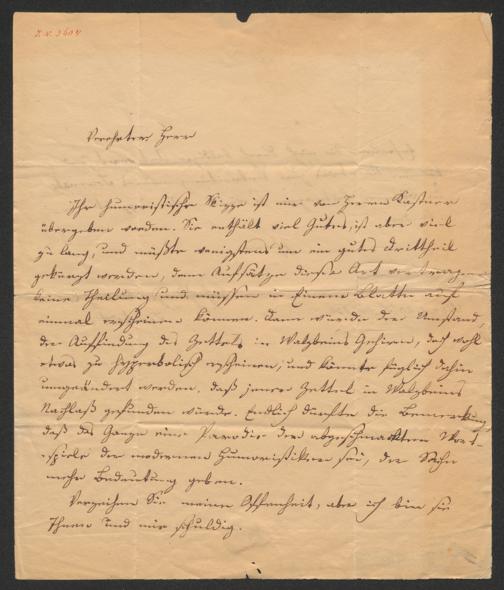 I. N. 3604
Verehrter Herr
Ihr humoristische Skizze ist mir von Herrn Kastner
übergeben worden. Sie enthält viel Gutes, ist aber viel
zu lang, und müßte wenigstens um ein gutes Drittheil
gekürzt werden, denn Aufsätze dieser Art vertragen
keine Theilung und müssen in Einem Blatte auf
einmal erscheinen können. Dann würde der Umstand,
der Auffindung des Zettels in Walzbeins Gehirn, doch wohl
etwas zu hyperbolisch erscheinen, und könnte füglich dahin
umgeändert werden, daß jener Zettel in Walzbeins
Nachlaß gefunden würde. Endlich dürfte die Bemerkung
daß das Ganze eine Parodie der abgeschmackten Wort-
spiele der modernen Humoristiker sei, der Sache
mehr Bedeutung geben.
Verzeihen Sie meine Offenheit, aber ich bin sie
Ihnen und mir schuldig.